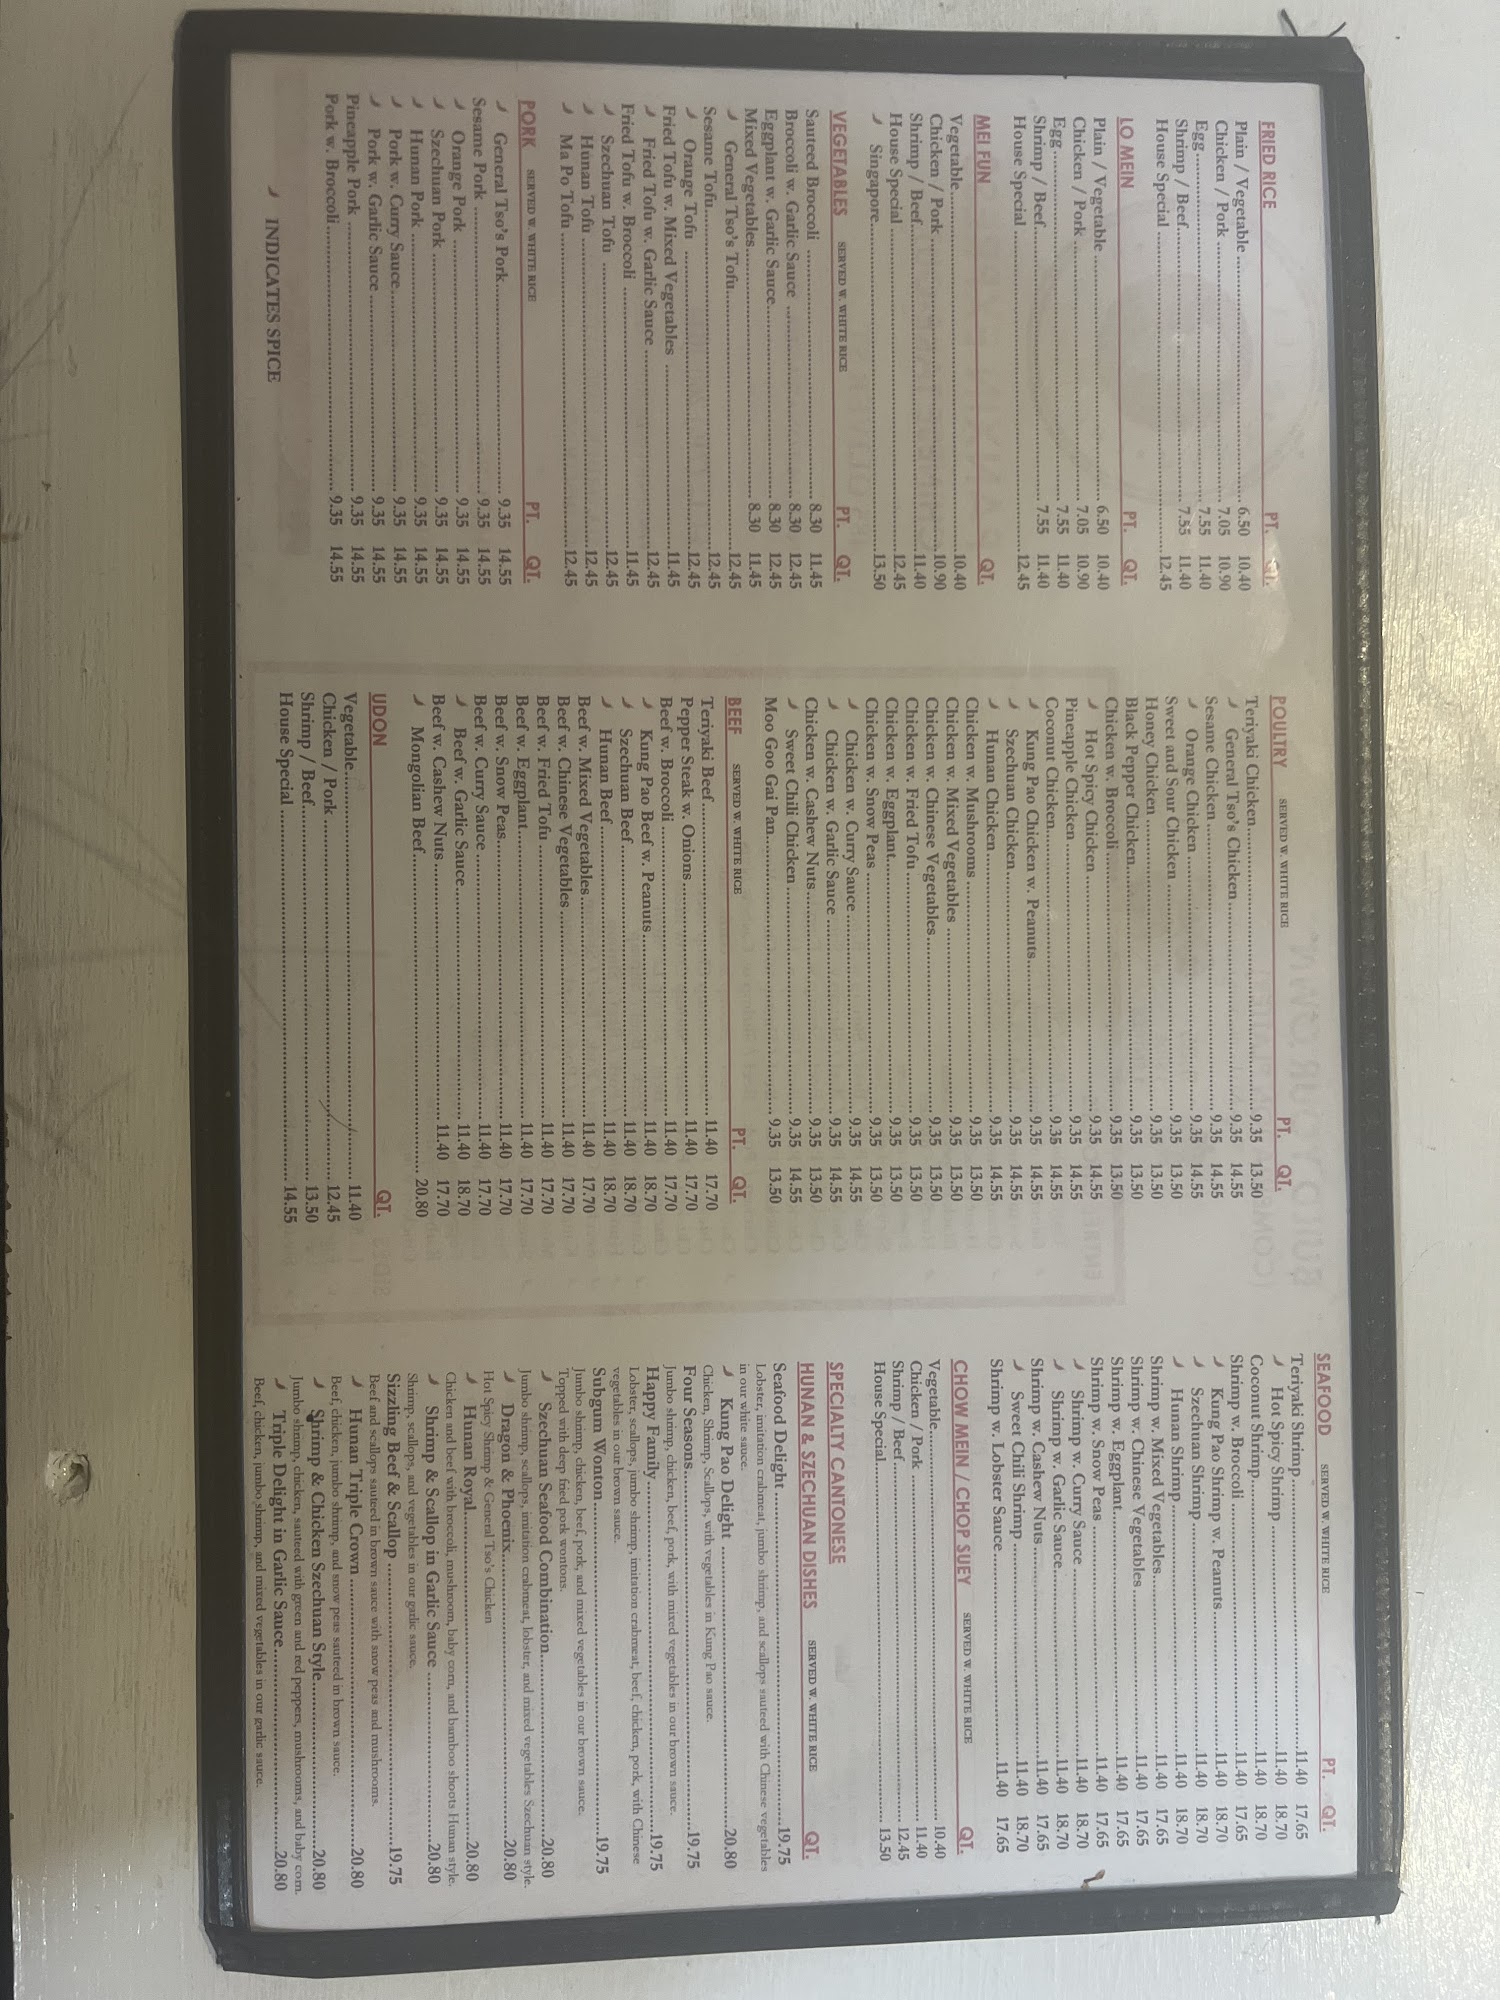 FRIED RICE PT. QT.
Plain / Vegetable 6.50 10.40
Chicken / Pork 7.05 10.90
Egg 7.55 11.40
Shrimp / Beef 7.55 11.40
House Special 12.45
LO MEIN PT. QT.
Plain / Vegetable 6.50 10.40
Chicken / Pork 7.05 10.90
Egg 7.55 11.40
Shrimp / Beef 7.55 11.40
House Special 12.45
MEI FUN QT.
Vegetable 10.40
Chicken / Pork 10.90
Shrimp / Beef 11.40
House Special 12.45
Singapore 13.50
VEGETABLES SERVED W. WHITE RICE PT. QT.
Sauteed Broccoli 8.30 11.45
Broccoli w. Garlic Sauce 8.30 12.45
Eggplant w. Garlic Sauce 8.30 12.45
Mixed Vegetables 8.30 11.45
General Tso's Tofu 12.45
Sesame Tofu 12.45
Orange Tofu 12.45
Fried Tofu w. Mixed Vegetables 11.45
Fried Tofu w. Garlic Sauce 12.45
Fried Tofu w. Broccoli 11.45
Szechuan Tofu 12.45
Hunan Tofu 12.45
Ma Po Tofu 12.45
PORK SERVED W. WHITE RICE PT. QT.
General Tso's Pork 9.35 14.55
Sesame Pork 9.35 14.55
Orange Pork 9.35 14.55
Szechuan Pork 9.35 14.55
Hunan Pork 9.35 14.55
Pork w. Curry Sauce 9.35 14.55
Pork w. Garlic Sauce 9.35 14.55
Pineapple Pork 9.35 14.55
Pork w. Broccoli 9.35 14.55
INDICATES SPICE
POULTRY SERVED W. WHITE RICE PT. QT.
Teriyaki Chicken 9.35 13.50
General Tso's Chicken 9.35 14.55
Sesame Chicken 9.35 14.55
Orange Chicken 9.35 14.55
Sweet and Sour Chicken 9.35 13.50
Honey Chicken 9.35 13.50
Black Pepper Chicken 9.35 13.50
Chicken w. Broccoli 9.35 13.50
Hot Spicy Chicken 9.35 14.55
Pineapple Chicken 9.35 14.55
Coconut Chicken 9.35 14.55
Kung Pao Chicken w. Peanuts 9.35 14.55
Szechuan Chicken 9.35 14.55
Hunan Chicken 9.35 14.55
Chicken w. Mushrooms 9.35 13.50
Chicken w. Mixed Vegetables 9.35 13.50
Chicken w. Chinese Vegetables 9.35 13.50
Chicken w. Fried Tofu 9.35 13.50
Chicken w. Eggplant 9.35 13.50
Chicken w. Snow Peas 9.35 13.50
Chicken w. Curry Sauce 9.35 14.55
Chicken w. Garlic Sauce 9.35 14.55
Chicken w. Cashew Nuts 9.35 13.50
Sweet Chili Chicken 9.35 14.55
Moo Goo Gai Pan 9.35 13.50
BEEF SERVED W. WHITE RICE PT. QT.
Teriyaki Beef 11.40 17.70
Pepper Steak w. Onions 11.40 17.70
Beef w. Broccoli 11.40 17.70
Kung Pao Beef w. Peanuts 11.40 18.70
Szechuan Beef 11.40 18.70
Hunan Beef 11.40 18.70
Beef w. Mixed Vegetables 11.40 17.70
Beef w. Chinese Vegetables 11.40 17.70
Beef w. Fried Tofu 11.40 17.70
Beef w. Eggplant 11.40 17.70
Beef w. Snow Peas 11.40 17.70
Beef w. Curry Sauce 11.40 17.70
Beef w. Garlic Sauce 11.40 18.70
Beef w. Cashew Nuts 11.40 17.70
Mongolian Beef 20.80
UDON QT.
Vegetable 11.40
Chicken / Pork 12.45
Shrimp / Beef 13.50
House Special 14.55
SEAFOOD SERVED W. WHITE RICE PT. QT.
Teriyaki Shrimp 11.40 17.65
Hot Spicy Shrimp 11.40 18.70
Coconut Shrimp 11.40 18.70
Shrimp w. Broccoli 11.40 17.65
Kung Pao Shrimp w. Peanuts 11.40 18.70
Szechuan Shrimp 11.40 18.70
Hunan Shrimp 11.40 18.70
Shrimp w. Mixed Vegetables 11.40 17.65
Shrimp w. Chinese Vegetables 11.40 17.65
Shrimp w. Eggplant 11.40 17.65
Shrimp w. Snow Peas 11.40 17.65
Shrimp w. Curry Sauce 11.40 18.70
Shrimp w. Garlic Sauce 11.40 18.70
Shrimp w. Cashew Nuts 11.40 17.65
Sweet Chili Shrimp 11.40 18.70
Shrimp w. Lobster Sauce 11.40 17.65
CHOW MEIN / CHOP SUEY SERVED W. WHITE RICE QT.
Vegetable 10.40
Chicken / Pork 11.40
Shrimp / Beef 12.45
House Special 13.50
SPECIALTY CANTONESE
HUNAN & SZECHUAN DISHES SERVED W. WHITE RICE QT.
Seafood Delight 19.75
Lobster, imitation crabmeat, jumbo shrimp, and scallops sauteed with Chinese vegetables
in our white sauce.
Kung Pao Delight 20.80
Chicken, Shrimp, Scallops, with vegetables in Kung Pao sauce.
Four Seasons 19.75
Jumbo shrimp, chicken, beef, pork, with mixed vegetables in our brown sauce.
Happy Family 19.75
Lobster, scallops, jumbo shrimp, imitation crabmeat, beef, chicken, pork, with Chinese
vegetables in our brown sauce.
Subgum Wonton 19.75
Jumbo shrimp, chicken, beef, pork, and mixed vegetables in our brown sauce.
Topped with deep fried pork wontons.
Szechuan Seafood Combination 20.80
Jumbo shrimp, scallops, imitation crabmeat, lobster, and mixed vegetables Szechuan style.
Dragon & Phoenix 20.80
Hot Spicy Shrimp & General Tso's Chicken
Hunan Royal 20.80
Chicken and beef with broccoli, mushroom, baby corn, and bamboo shoots Hunan style.
Shrimp & Scallop in Garlic Sauce 20.80
Shrimp, scallops, and vegetables in our garlic sauce.
Sizzling Beef & Scallop 19.75
Beef and scallops sauteed in brown sauce with snow peas and mushrooms.
Hunan Triple Crown 20.80
Beef, chicken, jumbo shrimp, and snow peas sauteed in brown sauce.
Shrimp & Chicken Szechuan Style 20.80
Jumbo shrimp, chicken, sauteed with green and red peppers, mushrooms, and baby corn.
Triple Delight in Garlic Sauce 20.80
Beef, chicken, jumbo shrimp, and mixed vegetables in our garlic sauce.